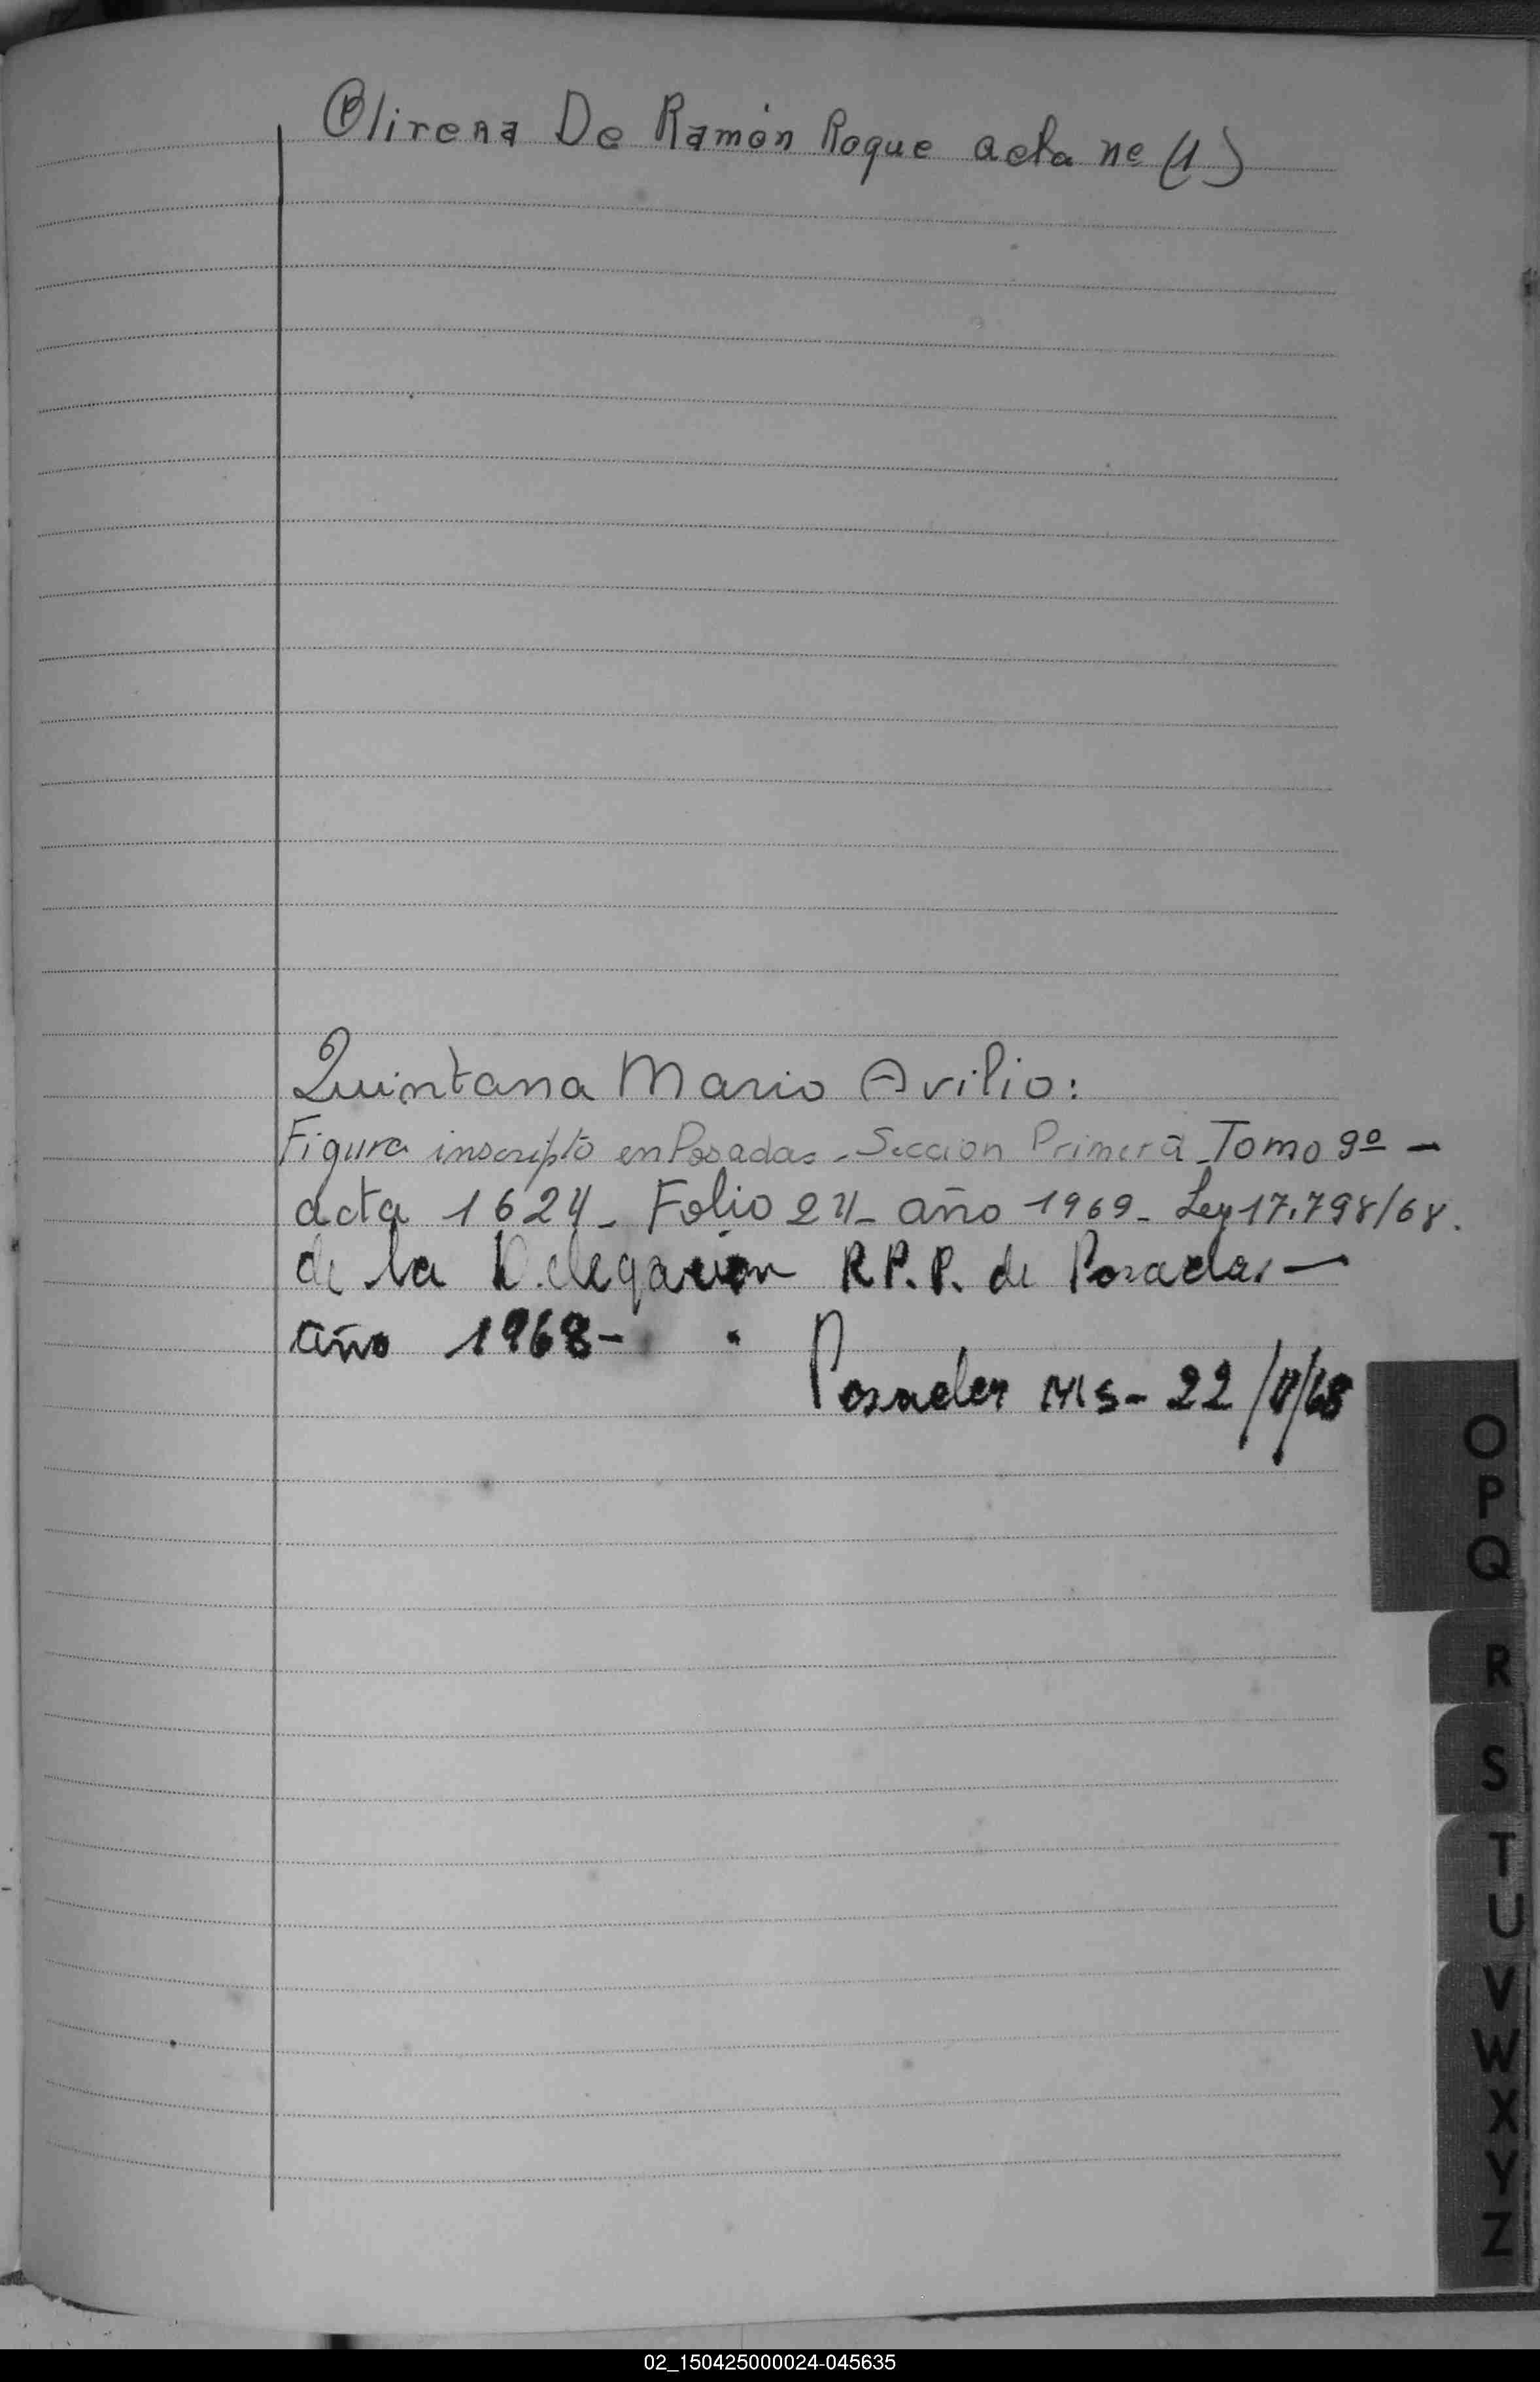 Olirera De Ramón Roque acta ne (1)
Quintana Mario Avilio:
Figura inscripto en Posadas - Seccion Primera - Tomo 9º -
acta 1624 - Folio 24 - año 1969 - Ley 17.798/68.
de la Delegacion R.P.P. de Posadas -
año 1968 -
Posadas Mis - 22/V/68
O
P
Q
R
S
T
U
V
W
X
Y
Z
02_150425000024-045635